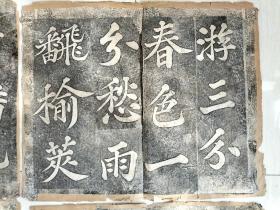 游三分
春色一
分愁雨
飜榆莢